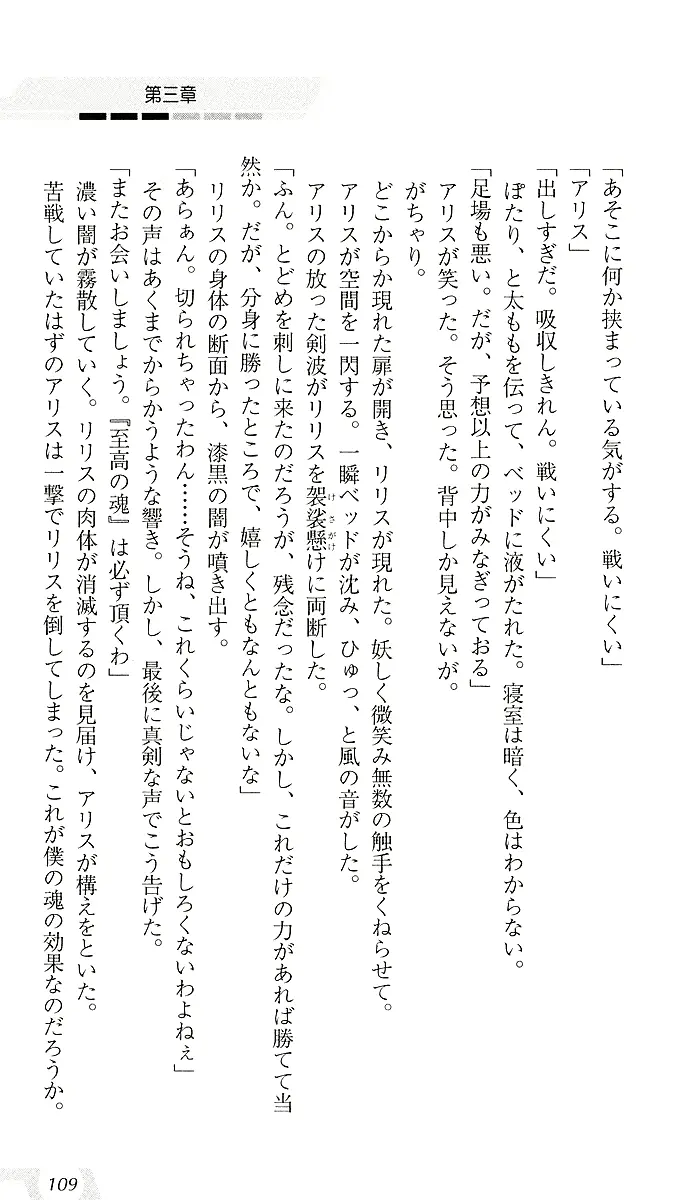 第三章
「あそこに何か挟まっている気がする。戦いにくい」
「アリス」
「出しすぎだ。吸収しきれん。戦いにくい」
ぽたり、と太ももを伝って、ベッドに液がたれた。寝室は暗く、色はわからない。
「足場も悪い。だが、予想以上の力がみなぎっておる」
アリスが笑った。そう思った。背中しか見えないが。
がちゃり。
どこからか現れた扉が開き、リリスが現れた。妖しく微笑み無数の触手をくねらせて。
アリスが空間を一閃する。一瞬ベッドが沈み、ひゅっ、と風の音がした。
アリスの放った剣波がリリスを袈裟懸けに両断した。
けさがけ
「ふん。とどめを刺しに来たのだろうが、残念だったな。しかし、これだけの力があれば勝てて当
然か。だが、分身に勝ったところで、嬉しくともなんともないな」
リリスの身体の断面から、漆黒の闇が噴き出す。
「あらぁん。切られちゃったわん……そうね、これくらいじゃないとおもしろくないわよねぇ」
その声はあくまでからかうような響き。しかし、最後に真剣な声でこう告げた。
「またお会いしましょう。『至高の魂』は必ず頂くわ」
濃い闇が霧散していく。リリスの肉体が消滅するのを見届け、アリスが構えをといた。
苦戦していたはずのアリスは一撃でリリスを倒してしまった。これが僕の魂の効果なのだろうか。
109